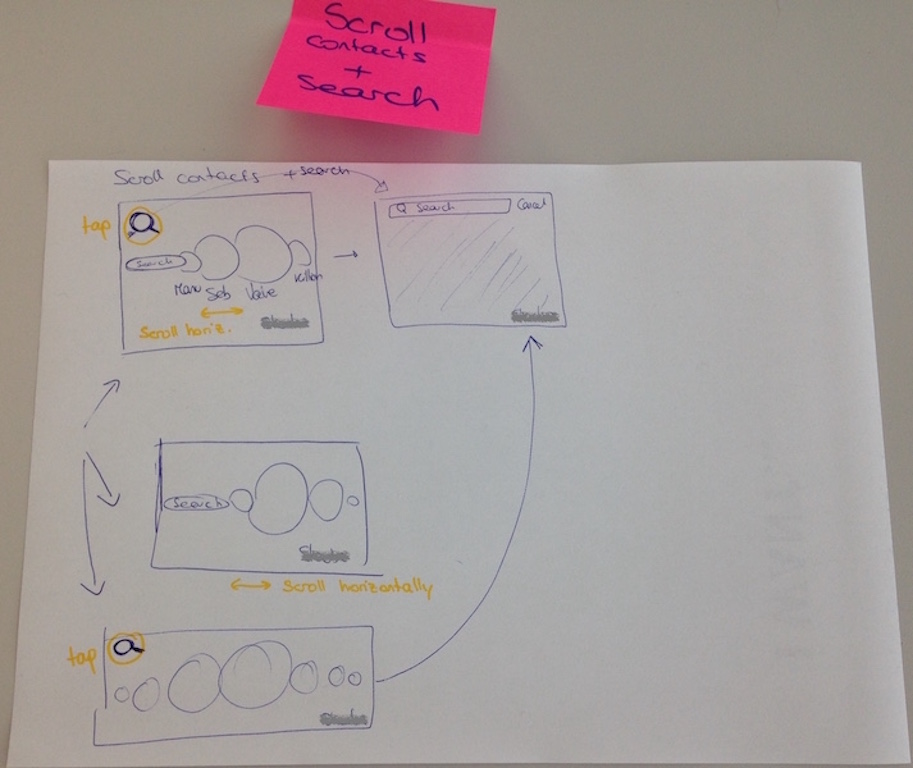 Scroll
contacts
+
search
Scroll contacts + search
tap
search
Manu Seb
Scroll horiz.
Search
Cancel
Search
Scroll horizontally
tap